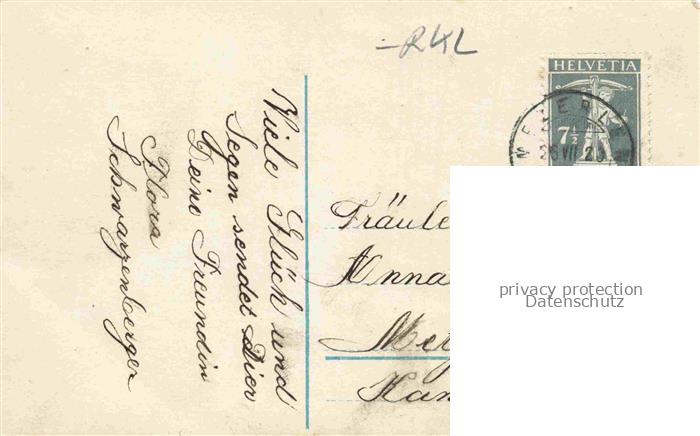 -R4L
HELVETIA
7½
Viele Glück und
Segen sendet Dier
Deine Freundin
Flora
Schwarzenberger
Fräule
Anna
Me
Kan
privacy protection
Datenschutz